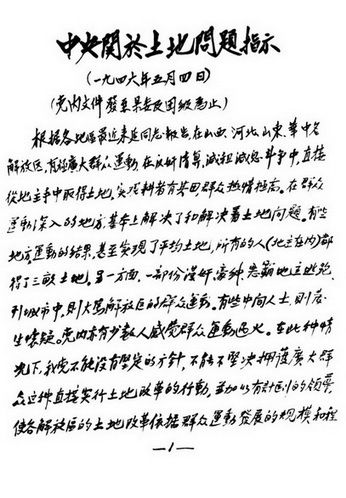 中央關於土地問題指示
(一九四六年五月四日)
(党内文件 發至县委及团级为止)
根据各地區最近来延同志報告,在山西、河北、山東、華中各
解放区,有极广大群众運動,在反奸清算,減租減息斗爭中,直接
從地主手中取得土地,实現耕者有其田,群众热情极高。在群众
運動深入的地方,基本上解决了和解决着土地问题。有些
地方運動的结果,甚至实現了平均土地,所有的人(地主在内)都
得了三畝土地。另一方面,一部份漢奸,豪紳,恶霸,地主逃跑
到城市中,则大罵解放區的群众運動。有些中间人士,则发
生懷疑。党内亦有少数人感觉群众運動过火。在此种情
况下,我党不能没有堅定的方针,不能不坚决拥護广大群
众这种直接实行土地改革的行動,並加以有計划的领導,
使各解放區的土地改革依据群众運動發展的规模和程
—1—